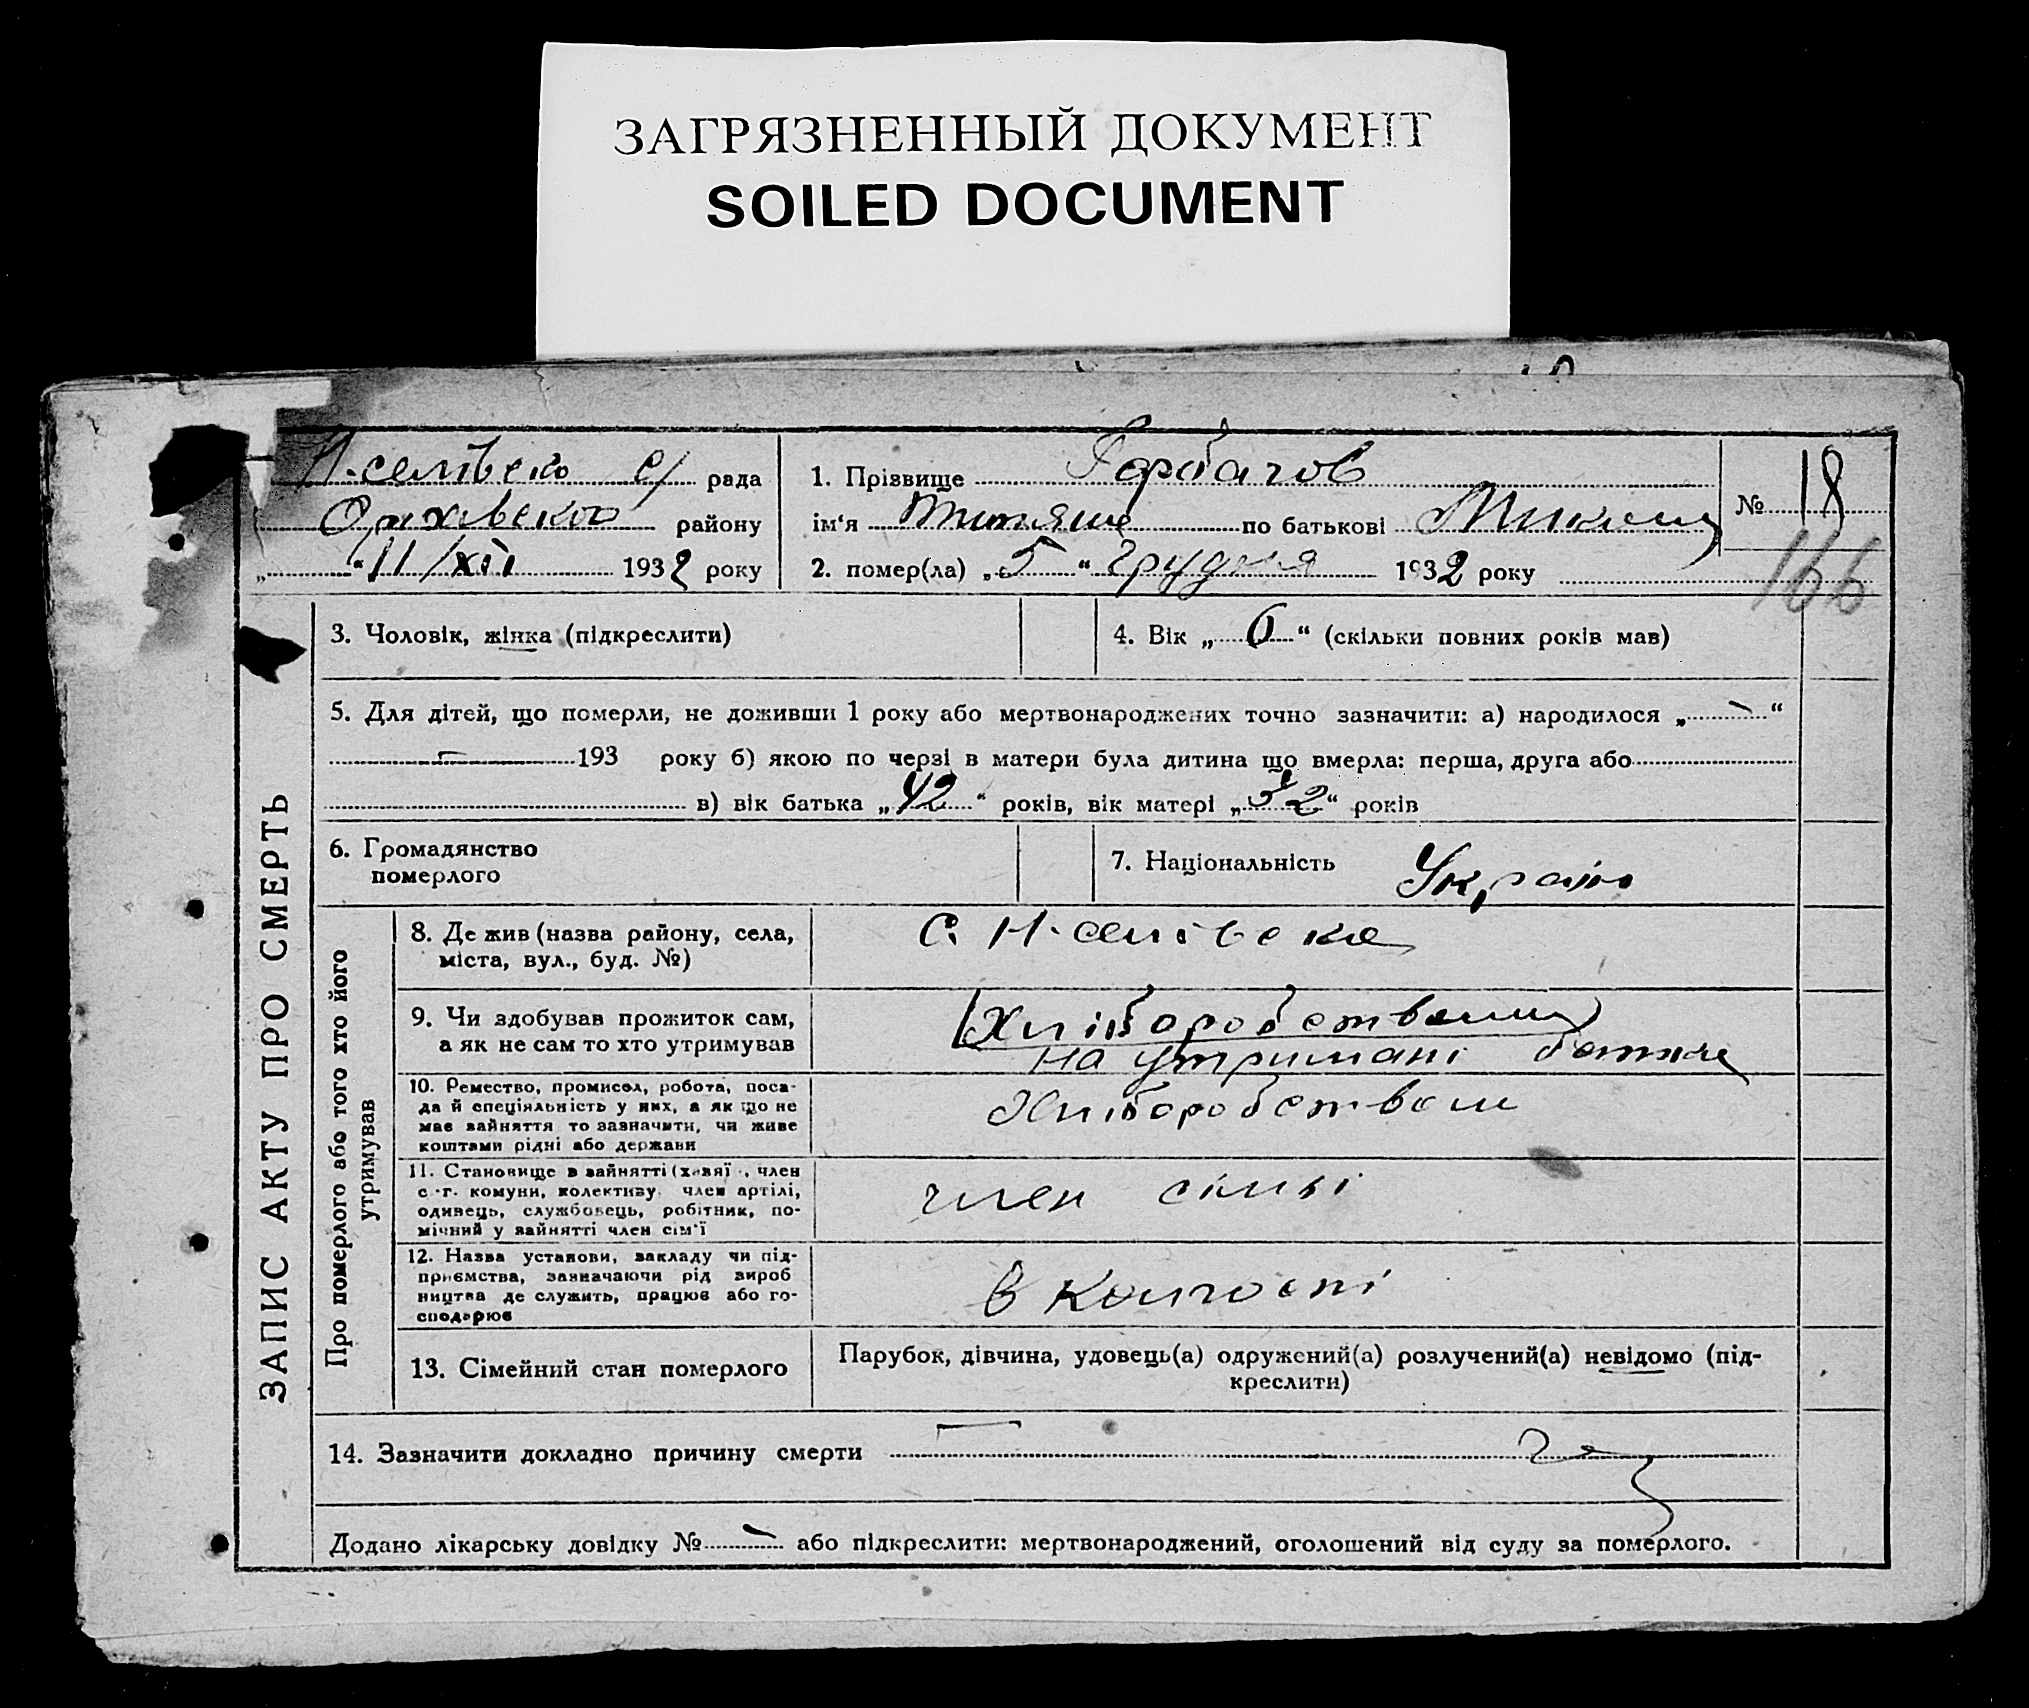 ЗАГРЯЗНЕННЫЙ ДОКУМЕНТ
SOILED DOCUMENT
рада
району
"11/XII 1932 року
1. Прізвище Горбачов
ім'я по батькові
2. помер(ла) „5" Грудня 1932 року
№ 18
166
ЗАПИС АКТУ ПРО СМЕРТЬ
3. Чоловік, жінка (підкреслити)
4. Вік „6" (скільки повних років мав)
5. Для дітей, що померли, не доживши 1 року або мертвонароджених точно зазначити: а) народилося „ – "
– 193 року б) якою по черзі в матери була дитина що вмерла: перша, друга або
в) вік батька „42" років, вік матері „32" років
6. Громадянство
померлого
7. Національність Україн
Про померлого або того хто його
утримував
8. Де жив (назва району, села,
міста, вул., буд. №)
с. Н-селівска
9. Чи здобував прожиток сам,
а як не сам то хто утримував
Хліборобством
на утримані батька
10. Ремество, промисел, робота, поса-
да й спеціяльність у них, а як що не
має зайняття то зазначити, чи живе
коштами рідні або держави
Хліборобством
11. Становище в зайнятті (хазяї , член
с.-г. комуни, колективу, член артілі,
одинець, службовець, робітник, по-
мічний у зайнятті член сім'ї
член сімьі
12. Назва установи, закладу чи під-
приємства, зазначаючи рід вироб
ництва де служить, працює або го-
сподарює
в колгоспі
13. Сімейний стан померлого
Парубок, дівчина, удовець(а) одружений(а) розлучений(а) невідомо (під-
креслити)
14. Зазначити докладно причину смерти –
Додано лікарську довідку № – або підкреслити: мертвонароджений, оголошений від суду за померлого.